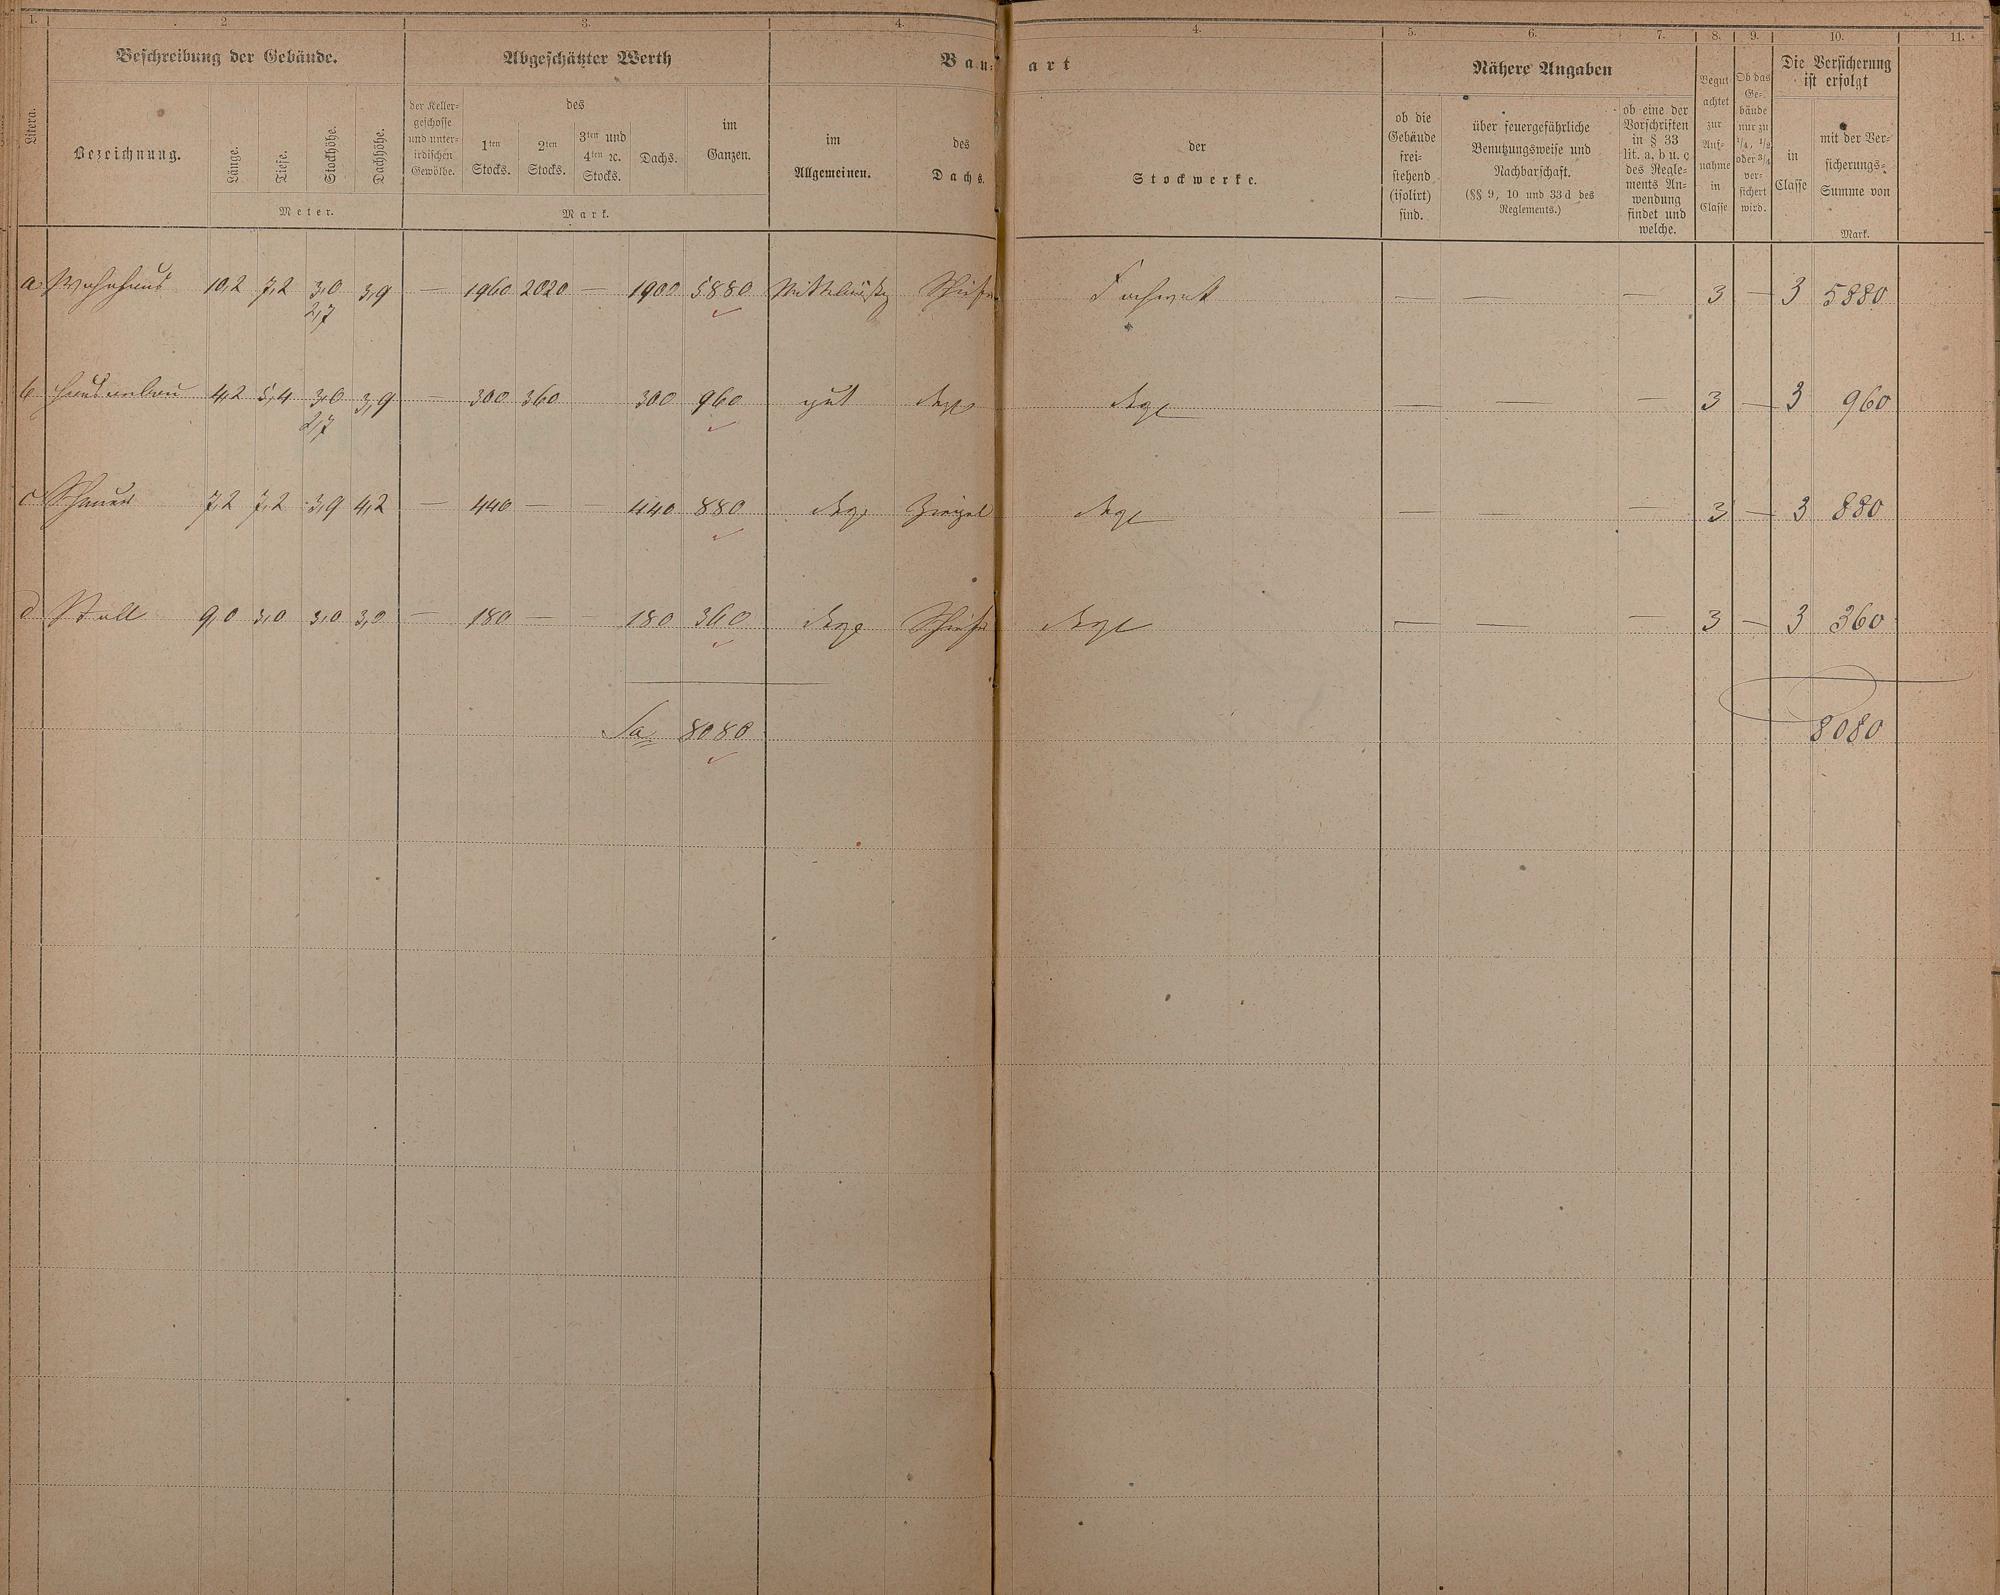 1. 2 3. 4. 4. 5. 6. 7. 8. 9. 10. 11.
Beschreibung der Gebäude. Abgeschätzter Werth Bau- art Nähere Angaben Die Versicherung ist erfolgt
Litera.
Bezeichnung.
Länge. Tiefe. Stockhöhe. Dachhöhe.
Meter.
der Keller-
geschosse
und unter-
irdischen
Gewölbe.
des
1ten Stocks.
2ten Stocks.
3ten und
4ten ꝛc.
Stocks.
Dachs.
im
Ganzen.
Mark.
im
Allgemeinen.
des
Dachs.
der
Stockwerke.
ob die
Gebäude
frei-
stehend
(isolirt)
sind.
über feuergefährliche
Benutzungsweise und
Nachbarschaft.
(§§ 9, 10 und 33d des
Reglements.)
ob eine der
Vorschriften
in § 33
lit. a, b u. c
des Regle-
ments An-
wendung
findet und
welche.
Begut
achtet
zur
Auf-
nahme
in
Classe
Ob das
Ge-
bäude
nur zu
1/4, 1/2
oder 3/4
ver-
sichert
wird.
in
Classe
mit der Ver-
sicherungs-
Summe von
Mark.
a Wohnhaus 10,2 7,2 3,0 3,9 — 1960 2020 — 1900 5880 Schiefer Fachwerk — — — 3 — 3 5880
2,7
b Hausanbau 4,2 5,4 3,0 3,9 — 300 360 300 960 gut degl degl — — — 3 — 3 960
2,7
c Scheuer 7,2 7,2 3,9 4,2 — 440 — — 440 880 degl Ziegel degl — — — 3 — 3 880
d Stall 9,0 3,0 3,0 3,0 — 180 — — 180 360 degl Schiefer degl — — — 3 — 3 360
Sa 8080 8080